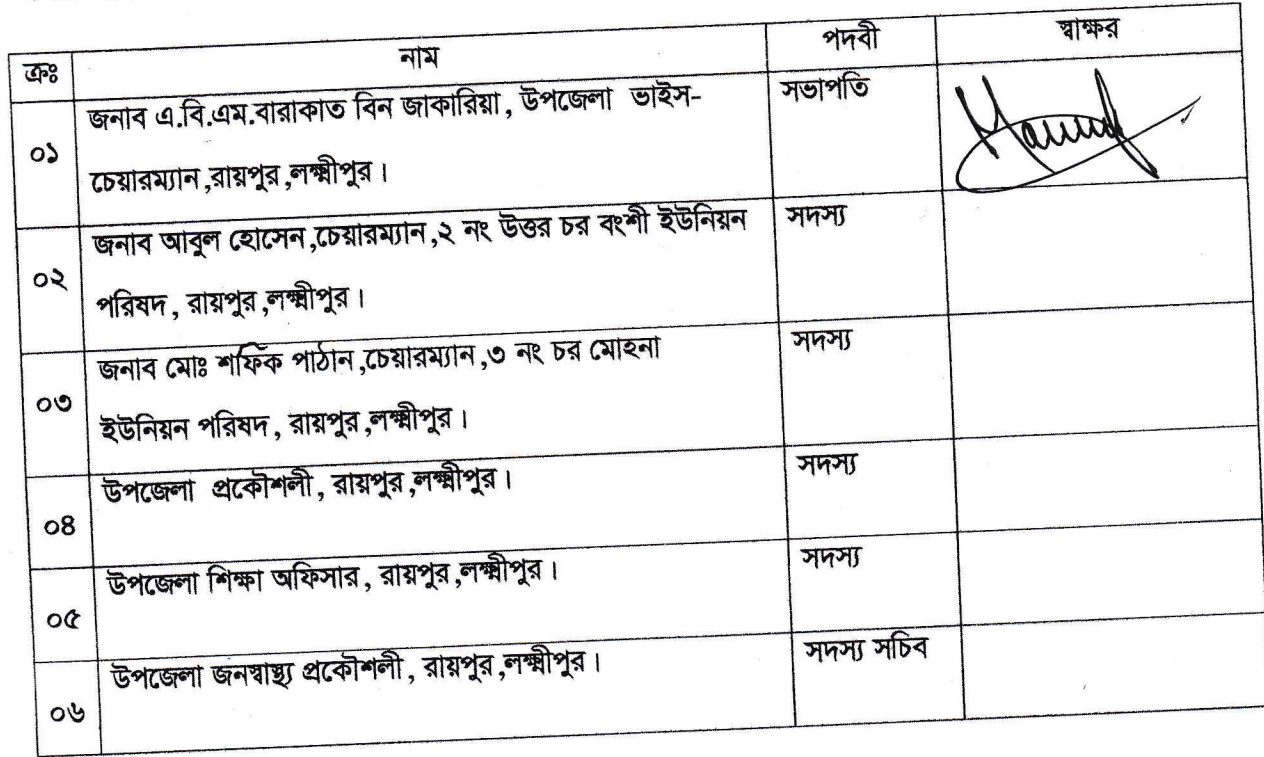 ক্রঃ নাম পদবী স্বাক্ষর
০১ জনাব এ.বি.এম.বারাকাত বিন জাকারিয়া, উপজেলা ভাইস- সভাপতি
চেয়ারম্যান,রায়পুর,লক্ষ্মীপুর।
০২ জনাব আবুল হোসেন,চেয়ারম্যান,২ নং উত্তর চর বংশী ইউনিয়ন সদস্য
পরিষদ, রায়পুর,লক্ষ্মীপুর।
০৩ জনাব মোঃ শফিক পাঠান,চেয়ারম্যান,৩ নং চর মোহনা সদস্য
ইউনিয়ন পরিষদ, রায়পুর,লক্ষ্মীপুর।
০৪ উপজেলা প্রকৌশলী, রায়পুর,লক্ষ্মীপুর। সদস্য
০৫ উপজেলা শিক্ষা অফিসার, রায়পুর,লক্ষ্মীপুর। সদস্য
০৬ উপজেলা জনস্বাস্থ্য প্রকৌশলী, রায়পুর,লক্ষ্মীপুর। সদস্য সচিব